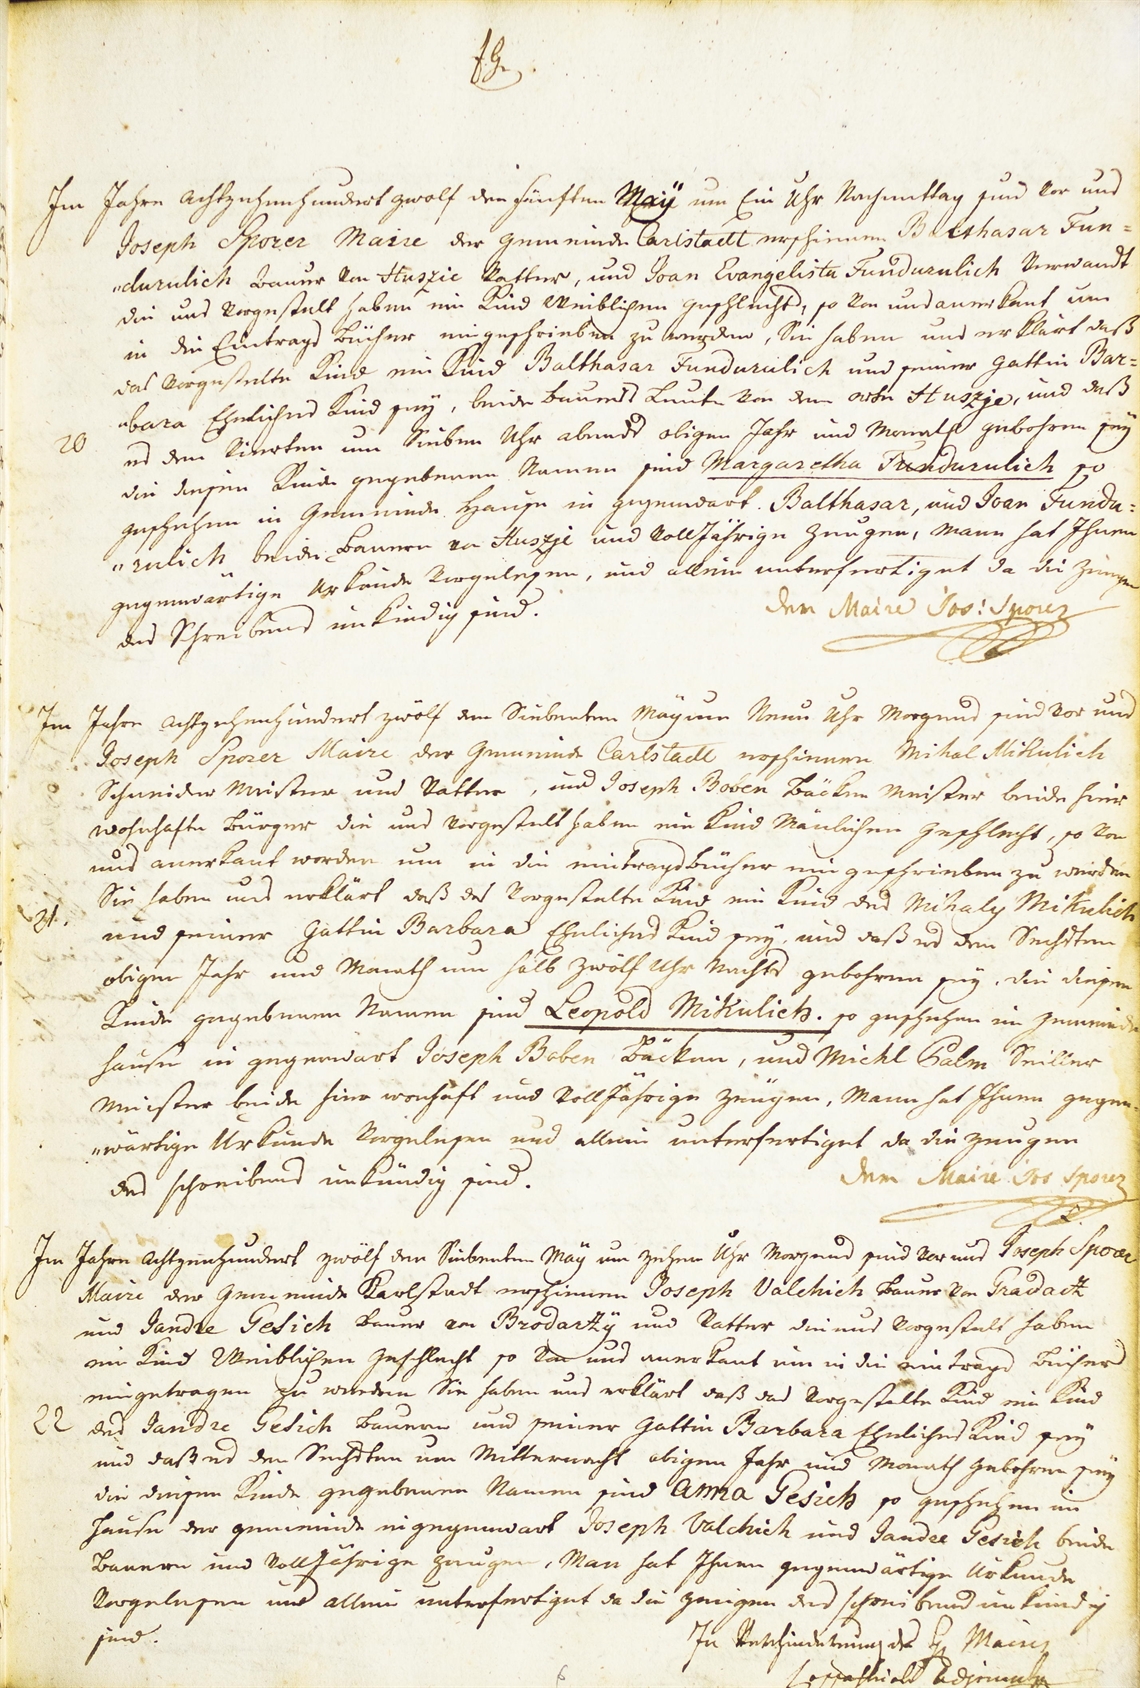 Im Jahre Achtzehenhundert zwölf den fünften Maÿ um Ein Uhr Nachmittag sind vor uns
Joseph Sporer Maire der Gemeinde Carlstadt erschienen Balthasar Fun=
„durulich Bauer von Huszie Vatter, und Joan Evangelista Fundurulich Verwandt
die uns vorgestellt haben ein Kind Weiblichen geschlechts, so von uns anerkant um
in die Eintrags Bücher eingeschrieben zu werden, Sie haben uns erklärt daß
das vorgestelte Kind ein Kind Balthasar Fundurulich und seiner Gattin Bar=
„bara Ehliches Kind seÿ, beide Bauers Leute von dem orte Huszje, und daß
20 es den Vierten um Sieben Uhr abends obigen Jahr und Monaths gebohren seÿ
die diesem Kinde gegebenen Namen sind Margaretha Fundurulich so
geschehen in Gemeinde Hause in gegenwart Balthasar, und Joan Fundu=
„rulich beide Bauern von Huszje und vollJährige Zeugen, Mann hat Ihnen
gegenwärtige Urkunde vorgelesen, und allein unterfertiget da die Zeugen
des Schreibens unkündig sind.
Der Maire Jos: Sporer
Im Jahre Achtzehenhundert zwölf den Siebenten Maÿ um Neun Uhr Morgens sind vor uns
Joseph Sporer Maire der Gemeinde Carlstadt erschienen Mihal Mikulich
Schneider Meister und Vatter, und Joseph Boben Bäcken Meister beide hier
wohnhafte Bürger die uns vorgestelt haben ein Kind Mänlichen Geschlecht, so von
uns anerkant worden um in die eintragsbücher eingeschrieben zu werden
Sie haben uns erklärt daß das vorgestelte Kind ein Kind des Mihaly Mikulich
21. und seiner Gattin Barbara Ehliches Kind seÿ, und daß es den Sechsten
obigen Jahr und Monath um halb zwölf Uhr Nachts gebohren seÿ, die diesem
Kinde gegebenen Namen sind Leopold Mikulich. so geschehen im gemeinde
hause in gegenwart Joseph Boben Bäcken, und Michl Palm Seiller
Meister beide hier wonhaft und vollJährige Zeugen, Mann hat Ihnen gegen=
„wärtige Urkunde vorgelesen und allein unterfertiget da die Zeugen
des schreibens unkündig sind.
Der Maire Jos Sporer
Im Jahre Achtzenhundert zwölf den Siebenten Maÿ um zehen Uhr Morgens sind vor uns Joseph Sporer
Maire der Gemeinde Karlstadt erschienen Joseph Valchich Bauer von Gradatz
und Jandre Gesich Bauer von Brodartzÿ und Vatter die uns vorgestelt haben
ein Kind Weiblichen Geschlecht so von uns anerkant um in die eintrags Bücher
eingetragen zu werden Sie haben uns erklärt daß das vorgestelte Kind ein Kind
22 des Jandre Gesich Bauern und seiner Gattin Barbara Ehliches Kind seÿ
und daß es den Sechsten um Mitternacht obigen Jahr und Monath gebohren seÿ
die diesem Kinde gegebenen Namen sind Anna Gesich so geschehen im
Hause der gemeinde in gegenwart Joseph Valchich und Jandre Gesich beide
Bauern und vollJährige Zeugen, Man hat Ihnen gegenwärtige Urkunde
vorgelesen und allein unterfertiget da die Zeugen des schreibens unkündig
sind.
In Verhinderung des H. Maires
Adjunct